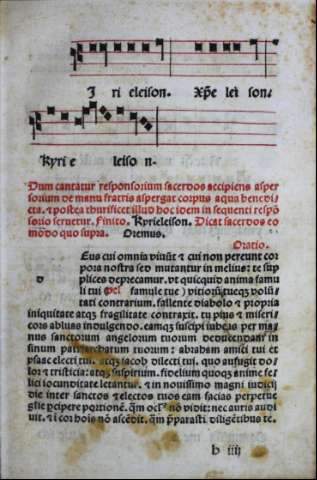 I ri eleison. Xp̄e lei son.
Kyri e leiso n.
Dum cantatur responsorium sacerdos accipiens asper
sorium de manu fratris aspergat corpus aqua benedi
cta. ⁊ postea thurificet illud hoc idem in sequenti respō
sorio seruetur. finito. Kyrieleison. Dicat sacerdos eo
mōdo quo supra. Oremus.
Oratio.
Eus cui omnia viuūt ⁊ cui non pereunt cor
pora nostra sed mutantur in melius: te sup
D
plices deprecamur. vt quicquid anima famu
li tui vel famule tue) vitiorūtueqꝫ volūn
tati contrarium. fallente diabolo ⁊ propria
iniquitate atqꝫ fragilitate contraxit. tu pius ⁊ miseri
cors abluas indulgendo. eamqꝫ suscipi iubeas per ma
nus sanctorum angelorum tuorum deducendam in
sinum patriarcharum tuorum: abraam amici tui et
ysaac electi tui. atqꝫ iacob dilecti tui. quo aufugit do
lor ⁊ tristicia: atqꝫ suspirium. fidelium quoqꝫ anime fe
lici iocunditate letantur. ⁊ in nouissimo magni iudicij
die inter sanctos ⁊ electos tuos eam facias perpetue
glīe percipere portionē. quā ocl's nō vidit: nec auris audi
uit. ⁊ i cor hoīs nō ascēdit. quā pparasti. diligētibus te.
b iiij